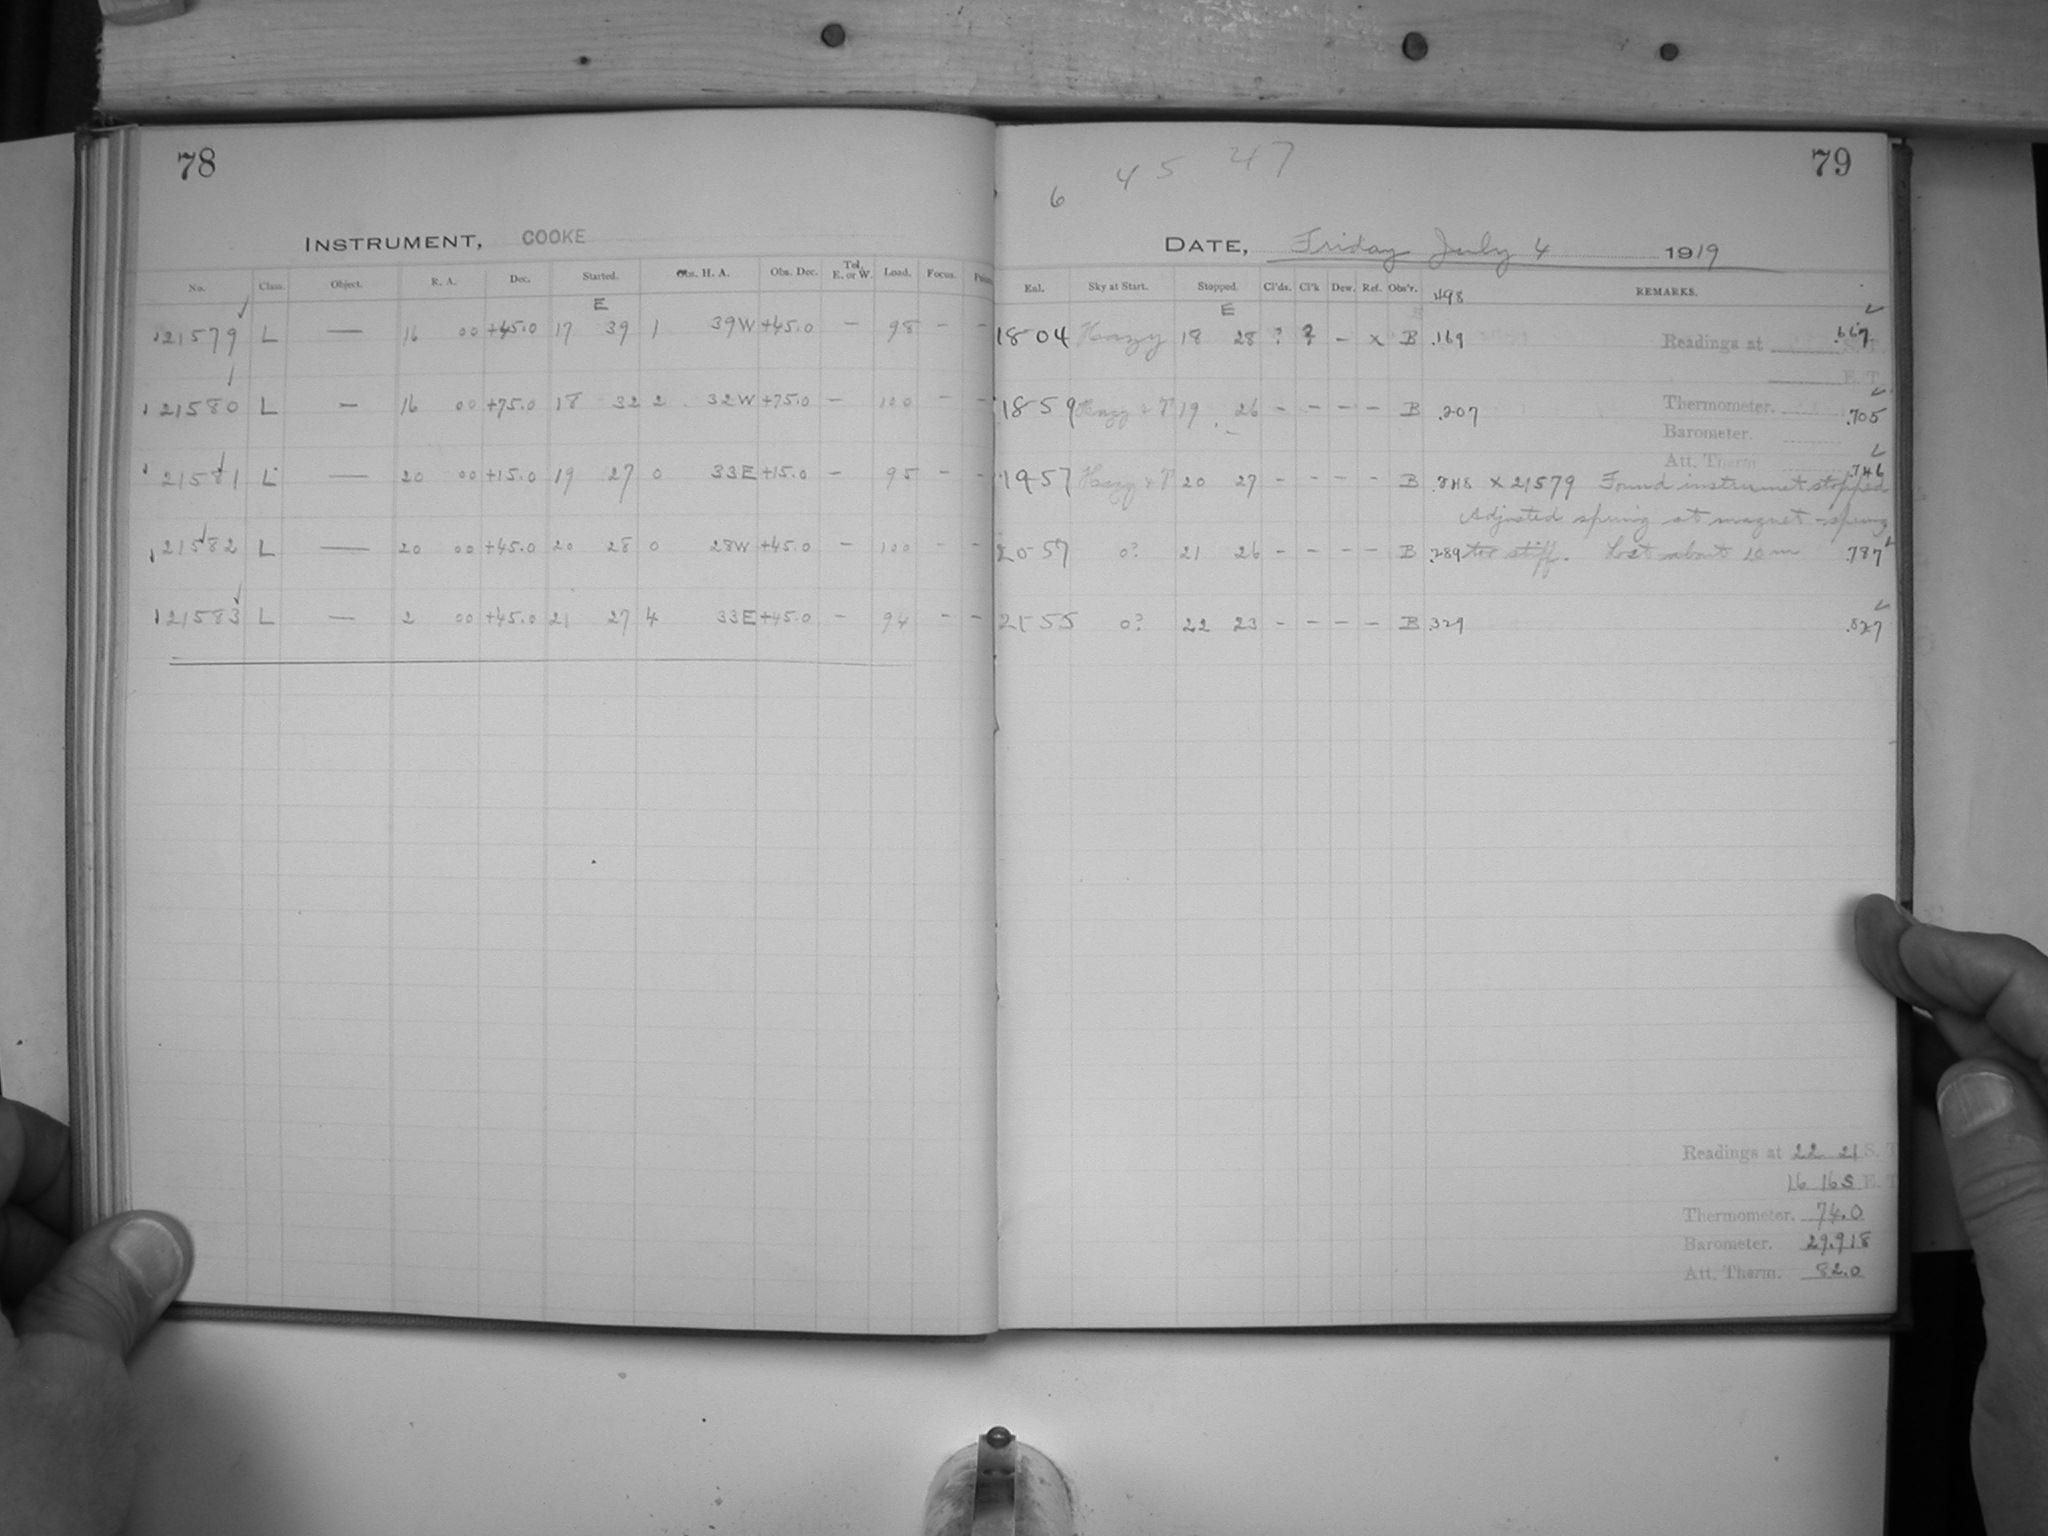 78
INSTRUMENT, COOKE
No. Class. Object. R. A. Dec. Started. Obs. H. A. Obs. Dec. Tel. E. or W. Load. Focus.
E
21579 L — 16 00 +45.0 17 39 1 39W +45.0 – 98 – –
21580 L — 16 00 +75.0 18 32 2 32W +75.0 – 100 – –
21581 L — 20 00 +15.0 19 27 0 33E +15.0 – 95 – –
21582 L — 20 00 +45.0 20 28 0 28W +45.0 – 100 – –
21583 L — 2 00 +45.0 21 27 4 33E +45.0 – 94 – –
6 45 47
79
DATE, Friday July 4 1919
Eal. Sky at Start. Stopped. Cl'ds. Cl'k Dew. Ref. Obs'r. .498 REMARKS.
E
18 04 Hazy 18 28 ? ? – x B .169 .667
Readings at S. T.
E. T.
18 59 Hazy & T 19 26 – – – – B .207 .705
Thermometer.
Barometer.
Att. Therm
19 57 Hazy & T 20 27 – – – – B .248 x 21579 Found instrument stopped .746
Adjusted spring at magnet – spring
20 57 0? 21 26 – – – – B .289 too stiff. Lost about 10 m .787
21 55 0? 22 23 – – – – B .329 .827
Readings at 22 21 S. T
16 16 S E. T
Thermometer. 74.0
Barometer. 29.918
Att. Therm. 82.0